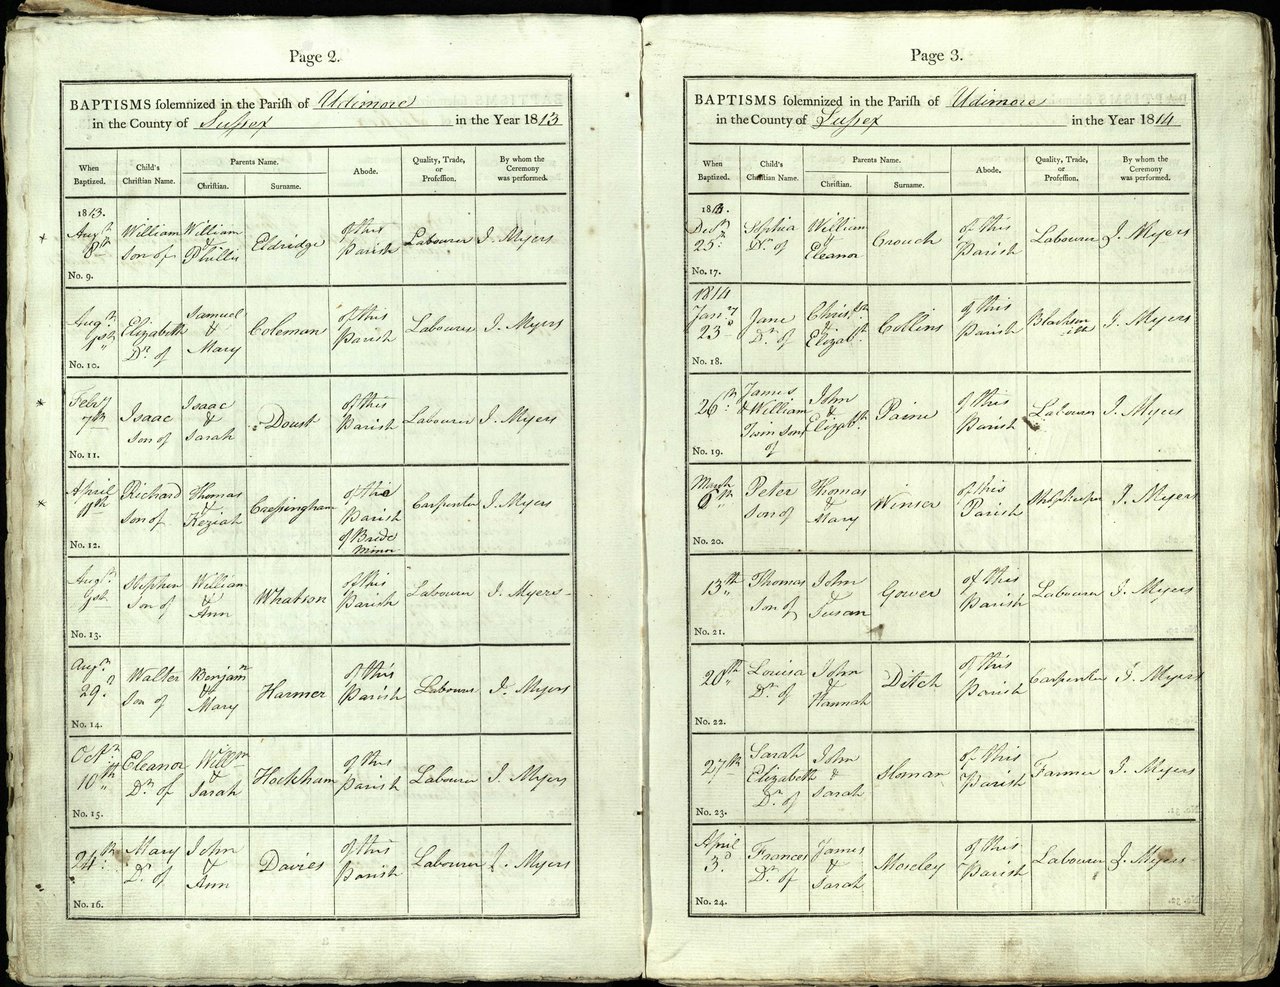 Page 2.
BAPTISMS solemnized in the Parish of Udimore
in the County of Sussex in the Year 1813
When Baptized. Child's Christian Name. Parents Name. Christian. Surname. Abode. Quality, Trade, or Profession. By whom the Ceremony was performed.
1813.
Augst 8th William son of William & Phillis Eldridge of this Parish Labourer J. Myers
No. 9.
Elizabeth Dr. of Samuel & Mary Coleman of this Parish Labourer J. Myers
No. 10.
Feby 7th Isaac son of Isaac & Sarah Doust of this Parish Labourer J. Myers
No. 11.
April 11th Richard Son of Thomas & Keziah Cressingham of this Parish of Brede Carpenter J. Myers
No. 12.
Stephen Son of William & Ann Whatson of this Parish Labourer J. Myers
No. 13.
29 Walter Son of Benjamn & Mary Harmer of this Parish Labourer J. Myers
No. 14.
10th Eleanor Dr. of Willm & Sarah Hockham of this Parish Labourer J. Myers
No. 15.
24th Mary Dr. of John & Ann Davies of this Parish Labourer J. Myers
No. 16.
Page 3.
BAPTISMS solemnized in the Parish of Udimore
in the County of Sussex in the Year 1814
When Baptized. Child's Christian Name. Parents Name. Christian. Surname. Abode. Quality, Trade, or Profession. By whom the Ceremony was performed.
1813.
25 Sophia Dr. of William & Eleanor Crouch of this Parish Labourer J. Myers
No. 17.
1814
Jany 23d Jane Dr. of & Elizabth Collins of this Parish J. Myers
No. 18.
26th James & William Twin sons of John & Elizabth Paine of this Parish Labourer J. Myers
No. 19.
March 6th Peter Son of Thomas & Mary Winser of this Parish Shopkeeper J. Myers
No. 20.
13th Thomas Son of John & Susan Gower of this Parish Labourer J. Myers
No. 21.
20th Louisa Dr. of John & Hannah Ditch of this Parish Carpenter J. Myers
No. 22.
27th Sarah Elizabeth Dr. of John & Sarah Homan of this Parish Farmer J. Myers
No. 23.
April 3d Frances Dr. of James & Sarah Moseley of this Parish Labourer J. Myers
No. 24.